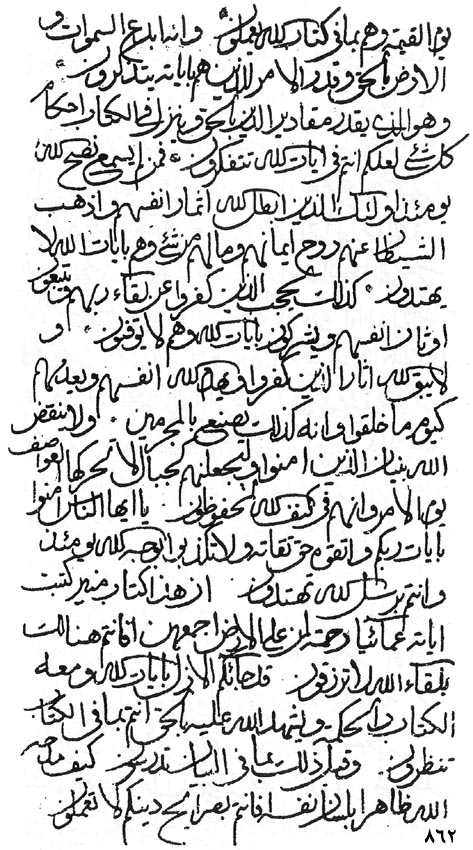 يوم القيمة وهم بما في كتاب الله يعملون وانه ابدع السموات و
الارض بالحق وقدر الامر للذين هم باياته يتذكرون
وهو الذي يقدر مقادير الذين بالحق وينزل في الكتاب احكام
كل شئ لعلكم انتم في ايات الله تتفكرون فمن لا يسمع نصح الله
يومئذ اولئك الذين ابطل الله اثمار انفسهم واذهب
الشيطان عنهم روح ايمانهم وما لهم من شئ وهم بايات الله لا
يهتدون كذلك يحجب الذين كفروا عن لقاء ربهم ويتبعون
اوثان انفسهم ويشركون بايات الله وهم لا يوقنون و
لا يبق الله اثار الذين كفروا ويهلك الله انفسهم ويجعلهم
كيوم ما خلقوا وانه كذلك يصنع بالمجرمين ولا ينقص
الله بنيان الذين امنوا وليجعلنهم كجبال لا تحركها العواصف
يوم الامر وانهم في كنف الله لمحفوظون يا ايها الناس امنوا
بايات ربكم واتقوه حق تقاته ولا تكذبوا لوجه الله يومئذ
وانتم برسل الله تهتدون ان هذا كتاب منير كتبت
اياته عمائيا رحمة لمن على الارض اجمعهن افانتم هنالك
بلقاء الله لا ترزقون قد جائكم الازل بايات الله ومعه
الكتاب والحكمة ويشهد الله عليه بالحق انتم بما في الكتاب
تنظرون وقبل ذلك بما في البيان تدرسون كيف
الله ظاهرا بلسان نفسه فانتم بصرايح دينكم لا تعملون
٨٦٢